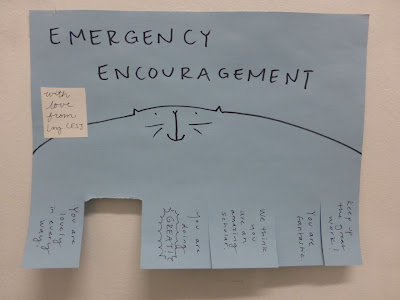 EMERGENCY
ENCOURAGEMENT
with
love
from
You are
lovely
in every
way!
You are
doing
GREAT!
We think
you
are an
amazing
scholar.
You are
fantastic.
Keep up
the
work!